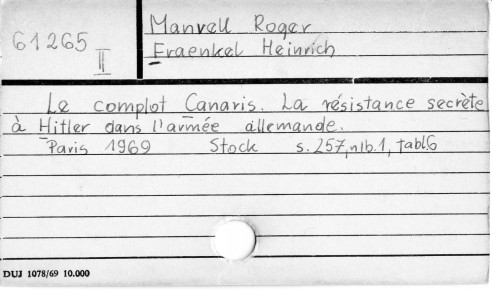 61265
II
Manvell Roger
Fraenkel Heinrich
Le complot Canaris. La résistance secrète
à Hitler dans l'armée allemande.
Paris 1969 Stock s. 257, nlb. 1, tabl. 6
DUJ 1078/69 10.000